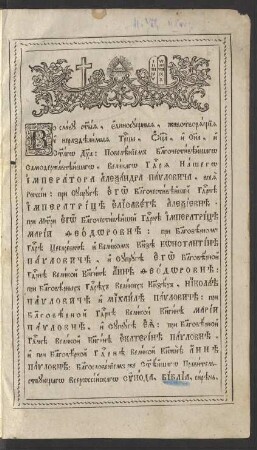 Во славу ст҃ыѧ, Єдиносущныѧ, животворѧщїѧ
и нераздѣлимыѧ Трⷪ҇цы, Ѻц҃а, и Сн҃а, и
ст҃агѡ Дх҃а: Повелѣнїемъ Благочестивѣйшагѡ
Самодержавнѣйшагѡ, Великагѡ Гдⷭ҇рѧ Нашегѡ
ІМПЕРАТОРА АЛЕѮАНДРА ПАѴЛОВИЧА, всеѧ
Россїи: при Сꙋпрꙋгѣ ЄГѠ Благочестивѣйшей Гдⷭ҇рнѣ
ІМПЕРАТРИЦѢ ЄЛІСАВЕТѢ АЛЕѮІЕВНѢ:
при Мт҃ри ЄГѠ Благочестивѣйшей Гдⷭ҇рнѣ ІМПЕРАТРИЦѢ
МАРІИ ѲЕОДОРОВНѢ: при Благовѣрномъ
Гдⷭ҇рѣ Цесаревичѣ и Великомъ Кнѧзѣ КѠНСТАНТІНѢ
ПАѴЛОВИЧѢ, и Сꙋпрꙋгѣ ЄГѠ Благовѣрной
Гдⷭ҇рнѣ Великой Кнѧгинѣ АННѢ ѲЕОДОРОВНѢ:
при Благовѣрныхъ Гдⷭ҇рѣхъ Великихъ Кнѧзехъ, НІКОЛАѢ
ПАѴЛОВИЧѢ и МІХАИЛѢ ПАѴЛОВИЧѢ: при
Благовѣрной Гдⷭ҇рнѣ Великой Кнѧгинѣ МАРІИ
ПАѴЛОВНѢ, и Сꙋпрꙋгѣ ЄѦ: при Благовѣрной
Гдⷭ҇рнѣ Великой Кнѧгинѣ ЄКАТЕРІНѢ ПАѴЛОВНѢ,
и при Благовѣрной Гдⷭ҇рнѣ Великой Кнѧгинѣ АННѢ
ПАѴЛОВНѢ: Благословенїемъ же Ст҃ѣйшагѡ Правитель-
ствꙋющагѡ Всероссїйскагѡ СѴНОДА, БІБЛІА, сирѣчь,